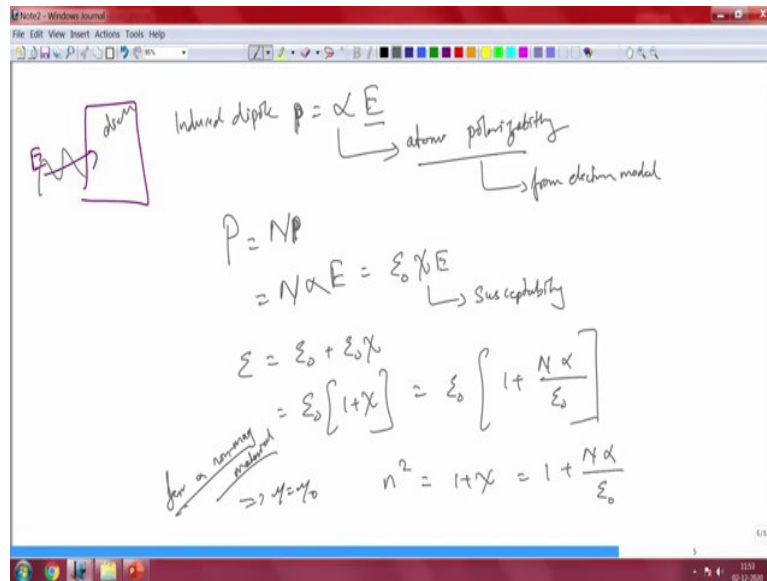 Note2 - Windows Journal
File Edit View Insert Actions Tools Help
Induced dipole p = α E
E
atomic polarizability
from electron model
P = Np
= NαE = ε₀ χ E
Susceptability
ε = ε₀ + ε₀χ
= ε₀[1+χ] = ε₀[1 + Nα/ε₀]
for a non-mag material
=> μ=μ₀ n² = 1+χ = 1 + Nα/ε₀
5
11:53
02-12-2020